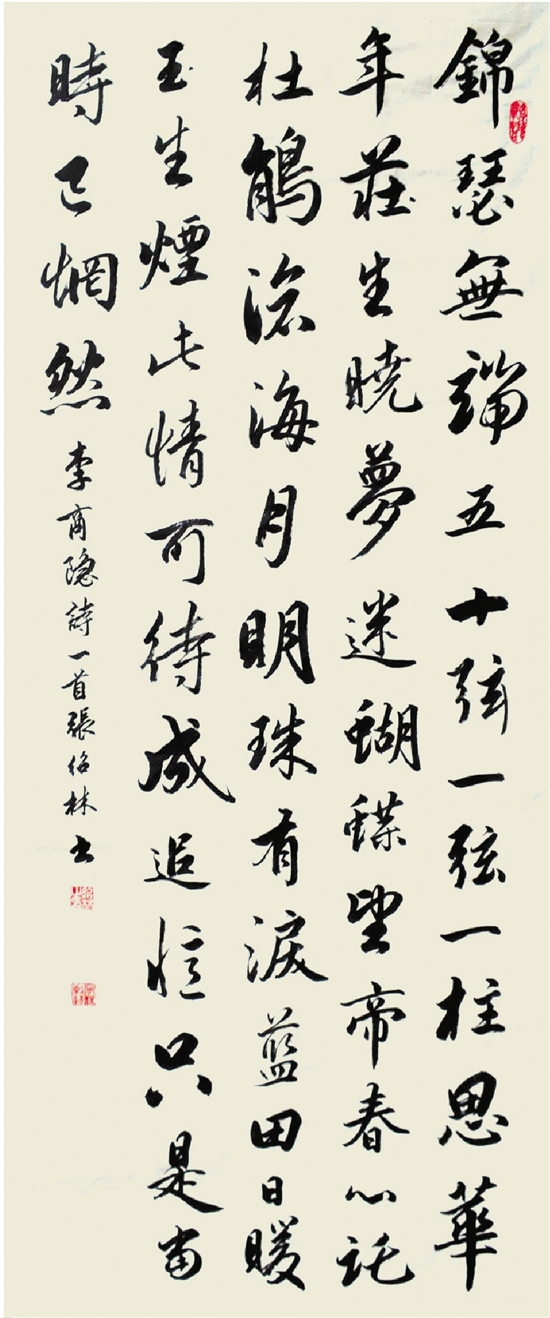 錦瑟無端五十弦一弦一柱思華
年莊生曉夢迷蝴蝶望帝春心託
杜鵑滄海月明珠有淚藍田日暖
玉生煙此情可待成追憶只是當
時已惘然
李商隐詩一首張佋林書